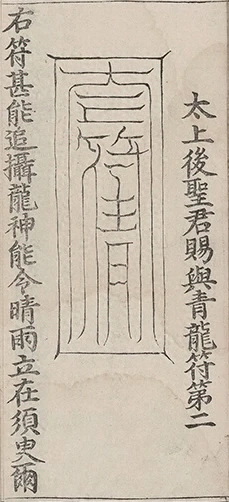 太上後聖君賜與青龍符第二
右符甚能追攝龍神能令晴雨立在須臾爾